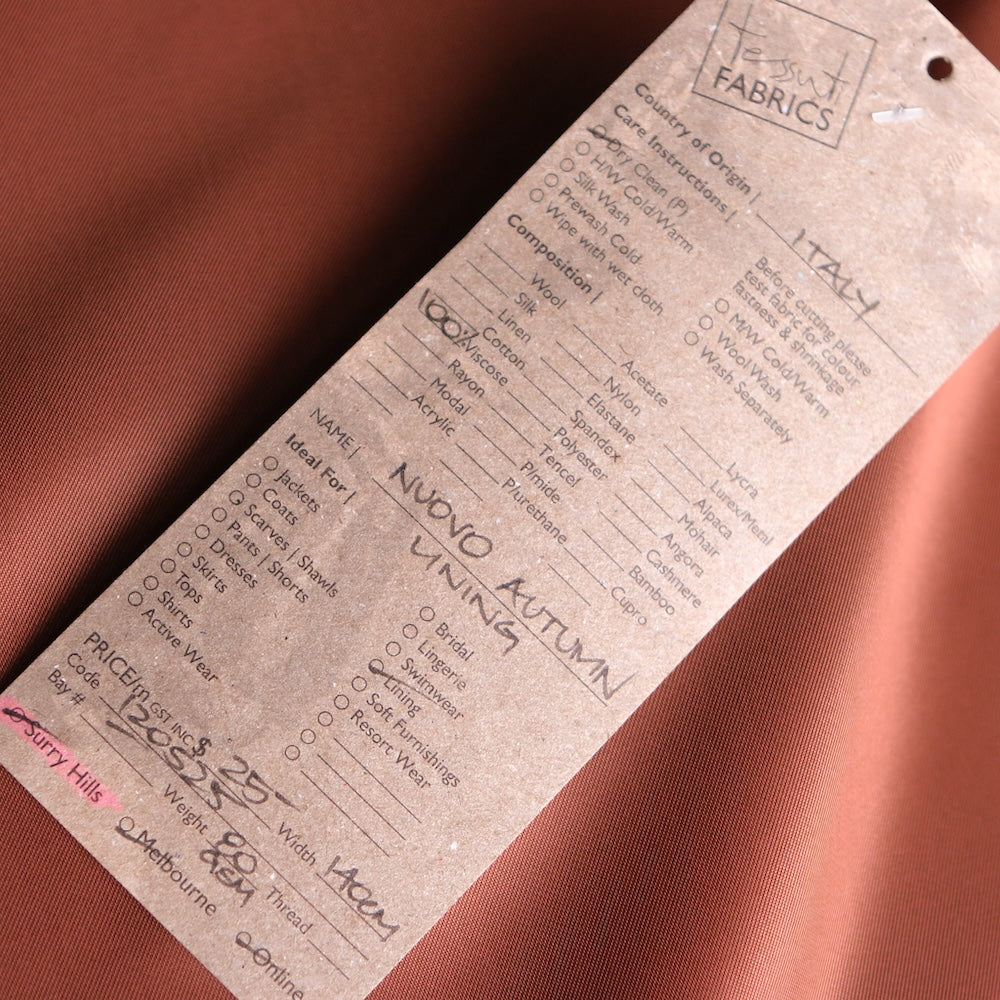 Tessuti
FABRICS
Country of Origin | ITALY
Care Instructions |
Dry Clean (P)
H/W Cold/Warm
Silk Wash
Prewash Cold
Wipe with wet cloth
Before cutting please
test fabric for colour
fastness & shrinkage
M/W Cold/Warm
Wool Wash
Wash Separately
Composition |
Wool
Silk
Linen
Cotton
100% Viscose
Rayon
Modal
Acrylic
Acetate
Nylon
Elastane
Spandex
Polyester
Tencel
P/mide
P/urethane
Lycra
Lurex/Metal
Alpaca
Mohair
Angora
Cashmere
Bamboo
Cupro
NAME | NUOVO AUTUMN
LINING
Ideal For |
Jackets
Coats
Scarves | Shawls
Pants | Shorts
Dresses
Skirts
Tops
Shirts
Active Wear
Bridal
Lingerie
Swimwear
Lining
Soft Furnishings
Resort Wear
PRICE/m GST INC $ 25-
Code 120525
Width 140cm
Bay #
Weight 80
GSM
Thread
Surry Hills
Melbourne
Online